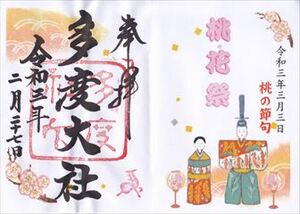 令和三年三月三日
桃の節句
桃花祭
奉拝
多度大社
令和三年
二月二十七日